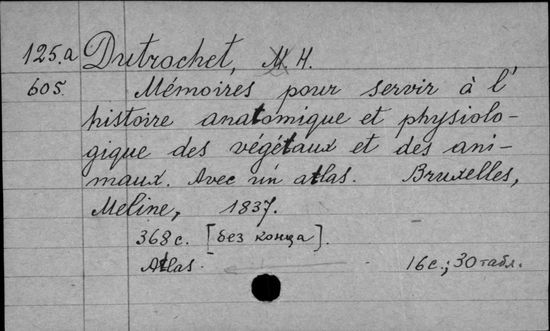 125.a Dutrochet, M. H.
605. Mémoires pour servir à l'
histoire anatomique et physiolo-
gique des végétaux et des ani-
maux. Avec un atlas. Bruxelles,
Meline, 1837.
368 с. [без конца].
Atlas. 16 с.; 30 табл.